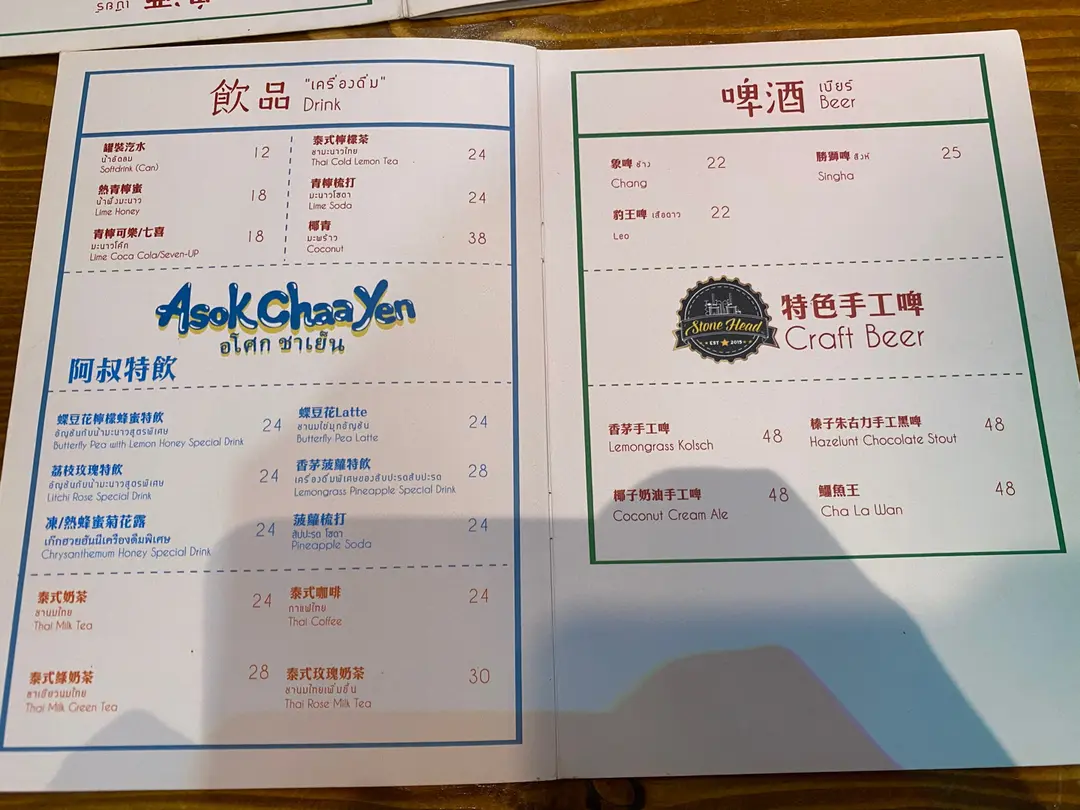 飲品 "เครื่องดื่ม"
Drink
罐裝汽水 12
น้ำอัดลม
Softdrink (Can)
熱青檸蜜 18
น้ำผึ้งมะนาว
Lime Honey
青檸可樂/七喜 18
มะนาวโค้ก
Lime Coca Cola/Seven-UP
泰式檸檬茶 24
ชามะนาวไทย
Thai Cold Lemon Tea
青檸梳打 24
มะนาวโซดา
Lime Soda
椰青 38
มะพร้าว
Coconut
Asok Chaa Yen
อโศก ชาเย็น
阿叔特飲
蝶豆花檸檬蜂蜜特飲 24
อัญชันกับน้ำมะนาวสูตรพิเศษ
Butterfly Pea with Lemon Honey Special Drink
荔枝玫瑰特飲 24
อัญชันกับน้ำมะนาวสูตรพิเศษ
Litchi Rose Special Drink
凍/熱蜂蜜菊花露 24
เก๊กฮวยฮันนี่เครื่องดื่มพิเศษ
Chrysanthemum Honey Special Drink
蝶豆花Latte 24
ชานมไข่มุกอัญชัน
Butterfly Pea Latte
香茅菠蘿特飲 28
เครื่องดื่มพิเศษของสับปะรดสับปะรด
Lemongrass Pineapple Special Drink
菠蘿梳打 24
สับปะรด โซดา
Pineapple Soda
泰式奶茶 24
ชานมไทย
Thai Milk Tea
泰式綠奶茶 28
ชาเขียวนมไทย
Thai Milk Green Tea
泰式咖啡 24
กาแฟไทย
Thai Coffee
泰式玫瑰奶茶 30
ชานมไทยเพิ่มชั้น
Thai Rose Milk Tea
啤酒 เบียร์
Beer
象啤 ช้าง 22
Chang
豹王啤 เสือดาว 22
Leo
勝獅啤 สิงห์ 25
Singha
Stone Head
EST ★ 2015
特色手工啤
Craft Beer
香茅手工啤 48
Lemongrass Kolsch
椰子奶油手工啤 48
Coconut Cream Ale
榛子朱古力手工黑啤 48
Hazelunt Chocolate Stout
鱷魚王 48
Cha La Wan